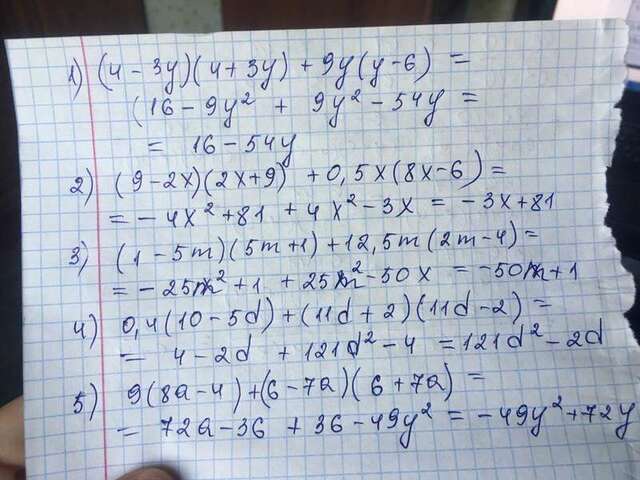 1) (4-3y)(4+3y) + 9y(y-6) =
(16-9y² + 9y² - 54y =
= 16-54y
2) (9-2x)(2x+9) + 0,5x(8x-6) =
= -4x² + 81 + 4x² - 3x = -3x+81
3) (1-5m)(5m+1) + 12,5m(2m-4) =
= -25m² + 1 + 25m² - 50x = -50m+1
4) 0,4(10-5d) + (11d+2)(11d-2) =
= 4-2d + 121d² - 4 = 121d² - 2d
5) 9(8a-4) + (6-7a)(6+7a) =
= 72a-36 + 36 - 49y² = -49y² + 72y